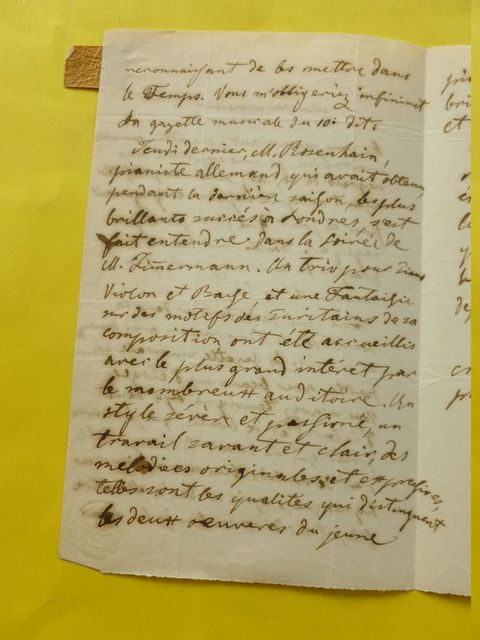 reconnaissant de les mettre dans
le Temps. Vous m'obligeriez infiniment
La gazette musicale du 10. dit:
Jeudi dernier, M. Rosenhain,
pianiste allemand, qui avait obtenu
pendant la dernière saison, les plus
brillants succès à Londres, s'est
fait entendre dans la soirée de
M. Zimermann. Un trio pour Piano
Violon et Basse, et une Fantaisie
sur des motifs des Puritains de sa
composition ont été accueillis
avec le plus grand intérêt par
le nombreux auditoire. Un
style sévère et passioné, un
travail savant et clair, des
mélodies originales et expressives,
telles sont les qualités qui distinguent
les deux oeuvres du jeune
bri
et